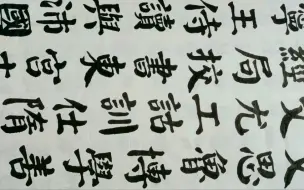 思魯博學善
文尤工詁訓仕隋
經局校書東宮
寧王侍讀與沛國